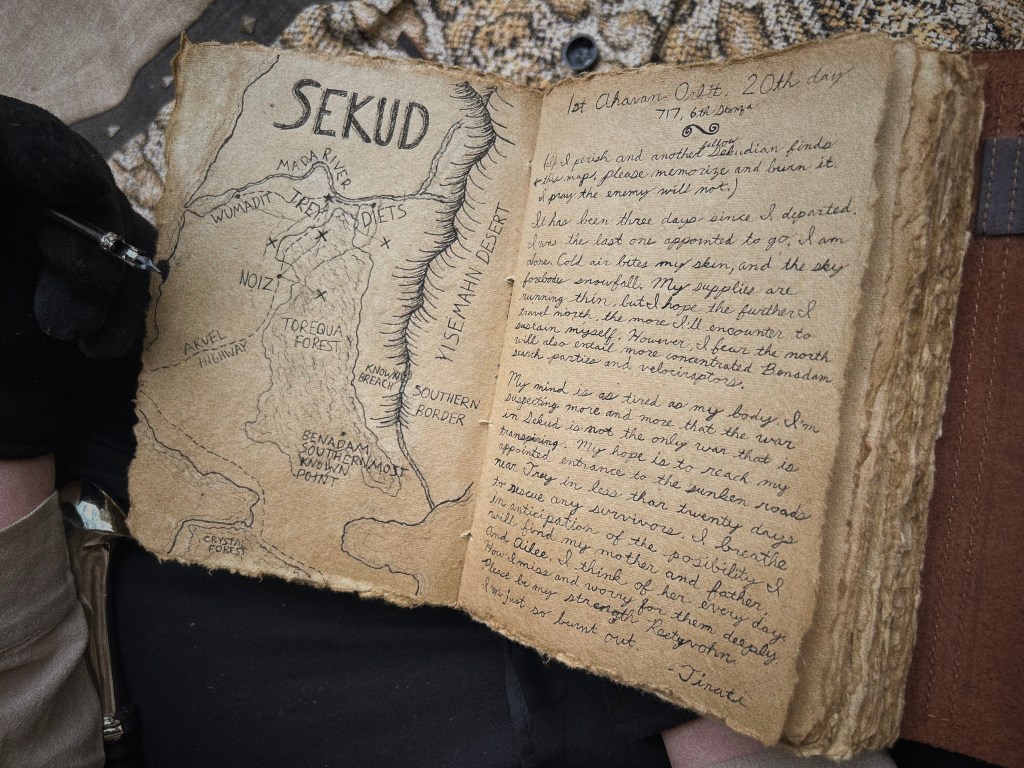 SEKUD
MADA RIVER
WUMADIT
TREY
DIETS
NOIZ
YISEMAHN DESERT
TOREQUA
FOREST
ARVEL
HIGHWAY
KNOWN
BREACH
SOUTHERN
BORDER
BENADAM
SOUTHERNMOST
KNOWN
POINT
CRYSTAL
FOREST
1st Aharan Orbit, 20th day
717, 6th
fellow
(If I perish and another Sekudian finds
this map, please memorize and burn it.
I pray the enemy will not.)
It has been three days since I departed.
I was the last one appointed to go. I am
alone. Cold air bites my skin, and the sky
forebods snowfall. My supplies are
running thin, but I hope the further I
travel north, the more I'll encounter to
sustain myself. However, I fear the north
will also entail more concentrated Benadam
search parties and velociraptors.
My mind is as tired as my body. I'm
suspecting more and more that the war
in Sekud is not the only war that is
transpiring. My hope is to reach my
appointed entrance to the sunken roads
near Trey in less than twenty days
to rescue any survivors. I breathe
in anticipation of the possibility I
will find my mother and father,
and Ailee. I think of her every day.
How I miss and worry for them deeply
Please be my strength Reetyvohn
I'm just so burnt out.
- Tirati